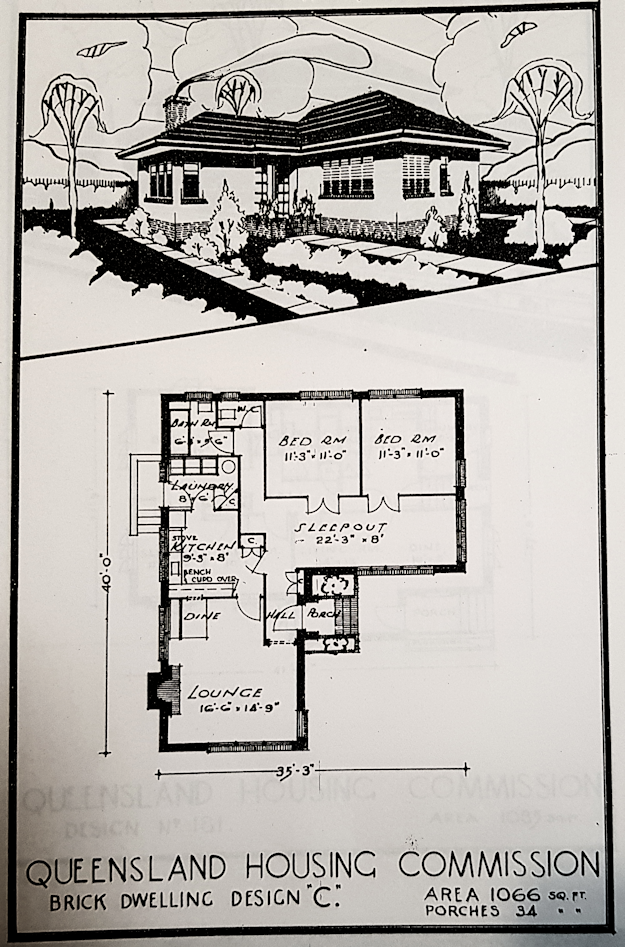 BATH RM
W.C.
BED RM
11'-3" x 11'-0"
BED RM
11'-3" x 11'-0"
LAUNDRY
C.
SLEEPOUT
22'-3" x 8'
STOVE
KITCHEN
9'-3" x 8'
C.
BENCH
CUPD OVER
40'-0"
C
DINE
HALL
PORCH
LOUNGE
16'-6" x 14'-9"
35'-3"
QUEENSLAND HOUSING COMMISSION
DESIGN No 181
AREA 1085
QUEENSLAND HOUSING COMMISSION
BRICK DWELLING DESIGN "C".
AREA 1066 SQ. FT.
PORCHES 34 " "